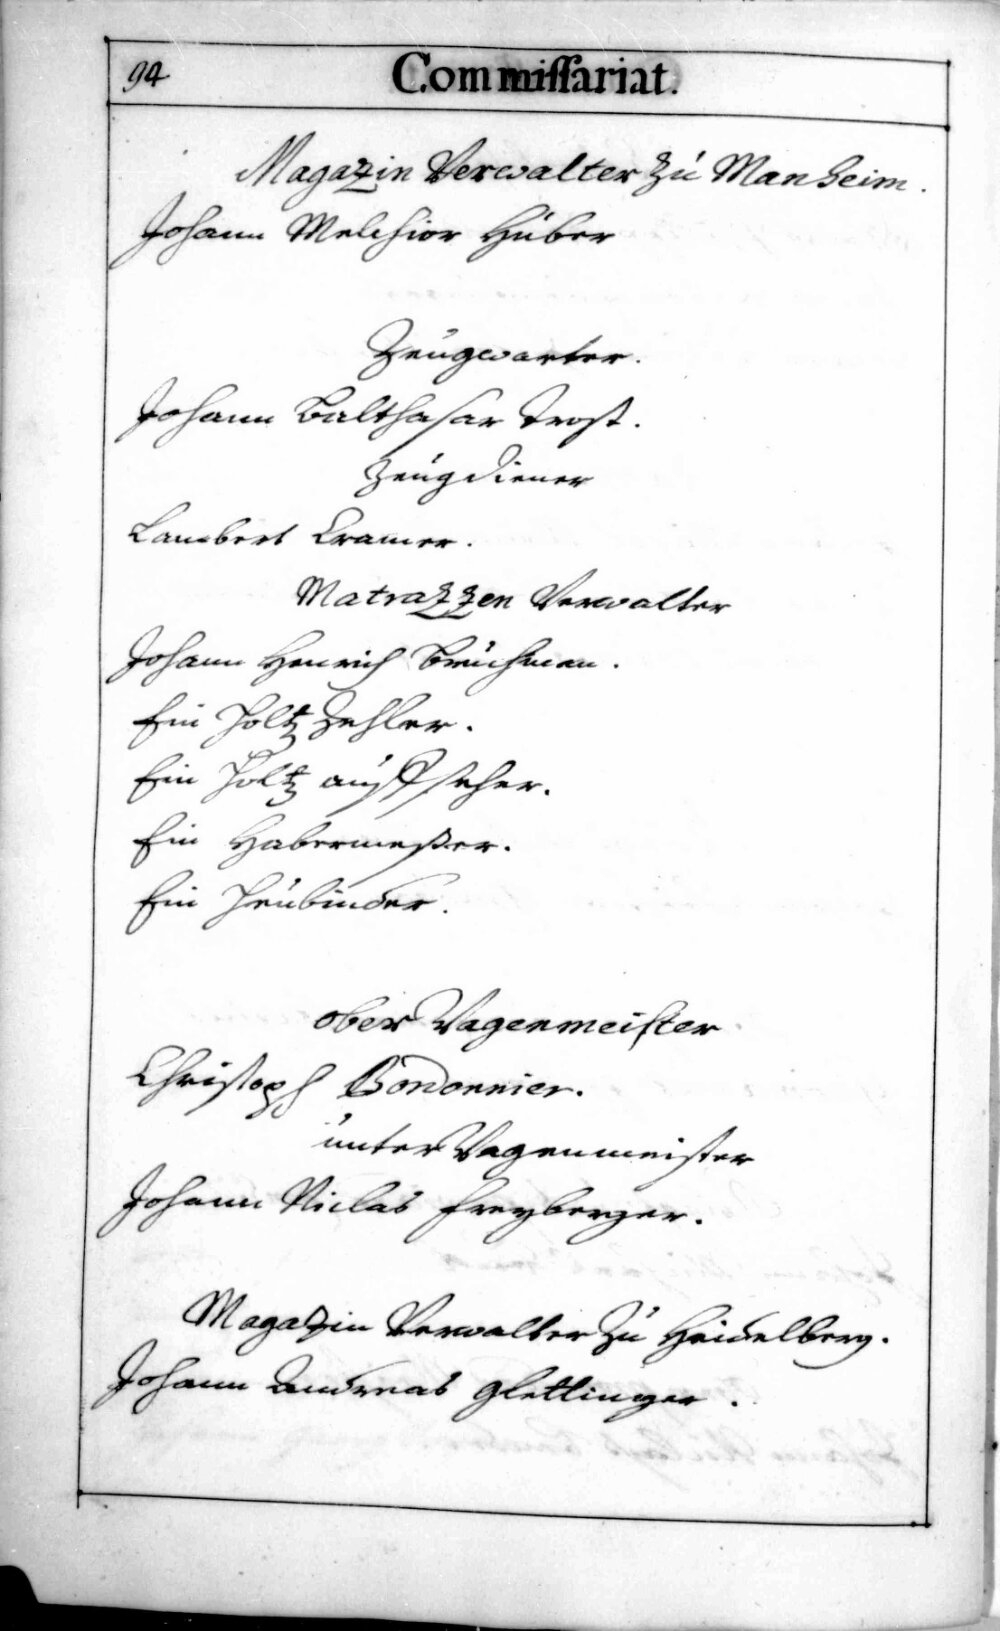 94
Commissariat.
Magazin Verwalter zu Manheim.
Johann Melchior Huber
Zeugwarter.
Johann Balthasar Trost.
Zeugdiener
Lambert Cramer.
Matrazzen Verwalter
Johann Henrich Bruchman.
Ein Holtz Zehler.
Ein Holtz auffseher.
Ein Habermeßer.
Ein Heubinder.
ober Wagenmeister
Christoph Bordonnier.
unter Wagenmeister
Johann Niclas Freyberger.
Magazin Verwalter zu Heidelberg.
Johann Andreas Glettinger.